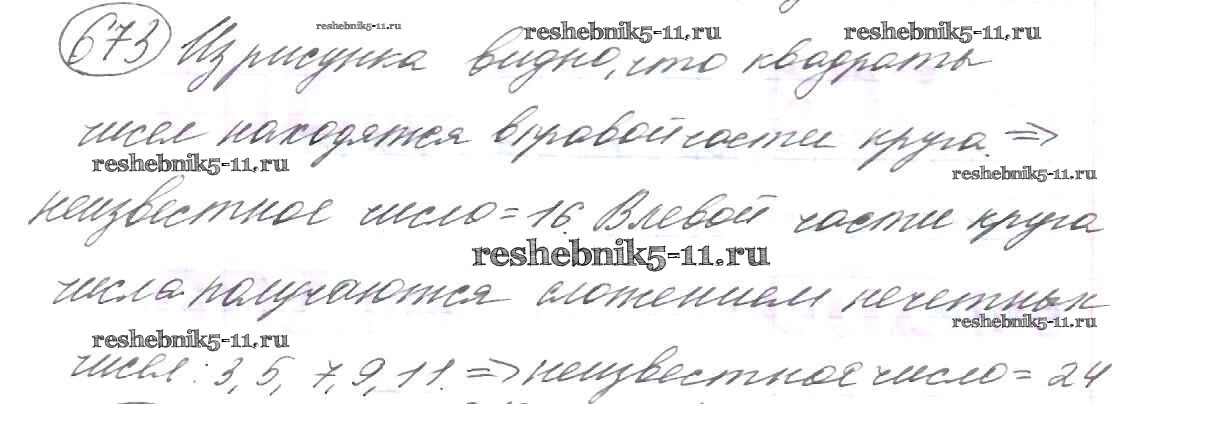 673 Из рисунка видно, что квадраты
reshebnik5-11.ru
reshebnik5-11.ru
reshebnik5-11.ru
чисел находятся в правой части круга. =>
reshebnik5-11.ru
reshebnik5-11.ru
неизвестное число = 16. В левой части круга
reshebnik5-11.ru
числа получаются сложением нечетных
reshebnik5-11.ru
reshebnik5-11.ru
чисел: 3, 5, 7, 9, 11. => неизвестное число = 24